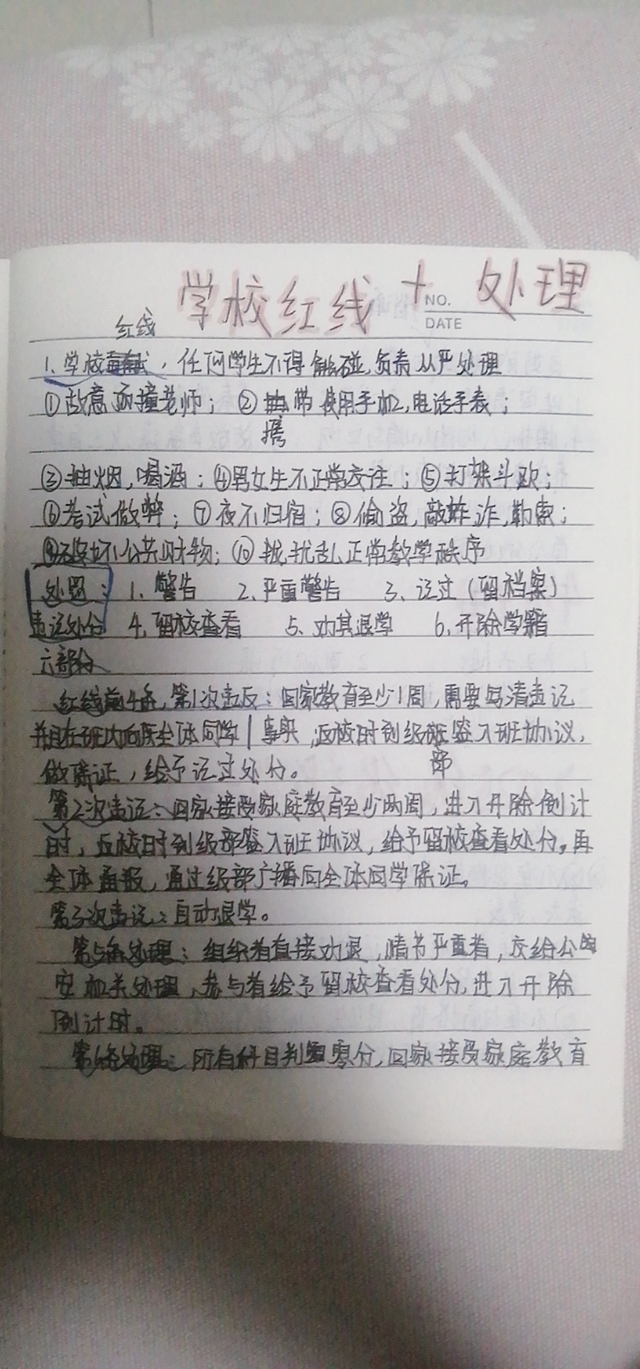 学校红线 + 处理
NO.
DATE
红线
1、学校，任何学生不得触碰，负责从严处理
①故意顶撞老师；②携带使用手机，电话手表；
③抽烟，喝酒；④男女生不正常交往；⑤打架斗殴；
⑥考试做弊；⑦夜不归宿；⑧偷盗，敲诈，勒索；
⑨破坏公共财物；⑩扰乱正常教学秩序
处罚：1、警告 2、严重警告 3、记过（留档案）
违记处分 4、留校查看 5、劝其退学 6、开除学籍
六部分
红线前4条，第1次违反：回家教育至少1周，需要写清违记
事实 返校时到级部签入班协议，
做保证，给予记过处分。
第2次违记：回家接受家庭教育至少两周，进入开除倒计
时，返校时到级部签入班协议，给予留校查看处分，再
全体通报，通过级部广播向全体同学保证。
第3次违记：自动退学。
第5条处理：组织者直接劝退，情节严重者，交给公
安机关处理，参与者给予留校查看处分，进入开除
倒计时。
第6条处理：所有科目判零分，回家接受家庭教育